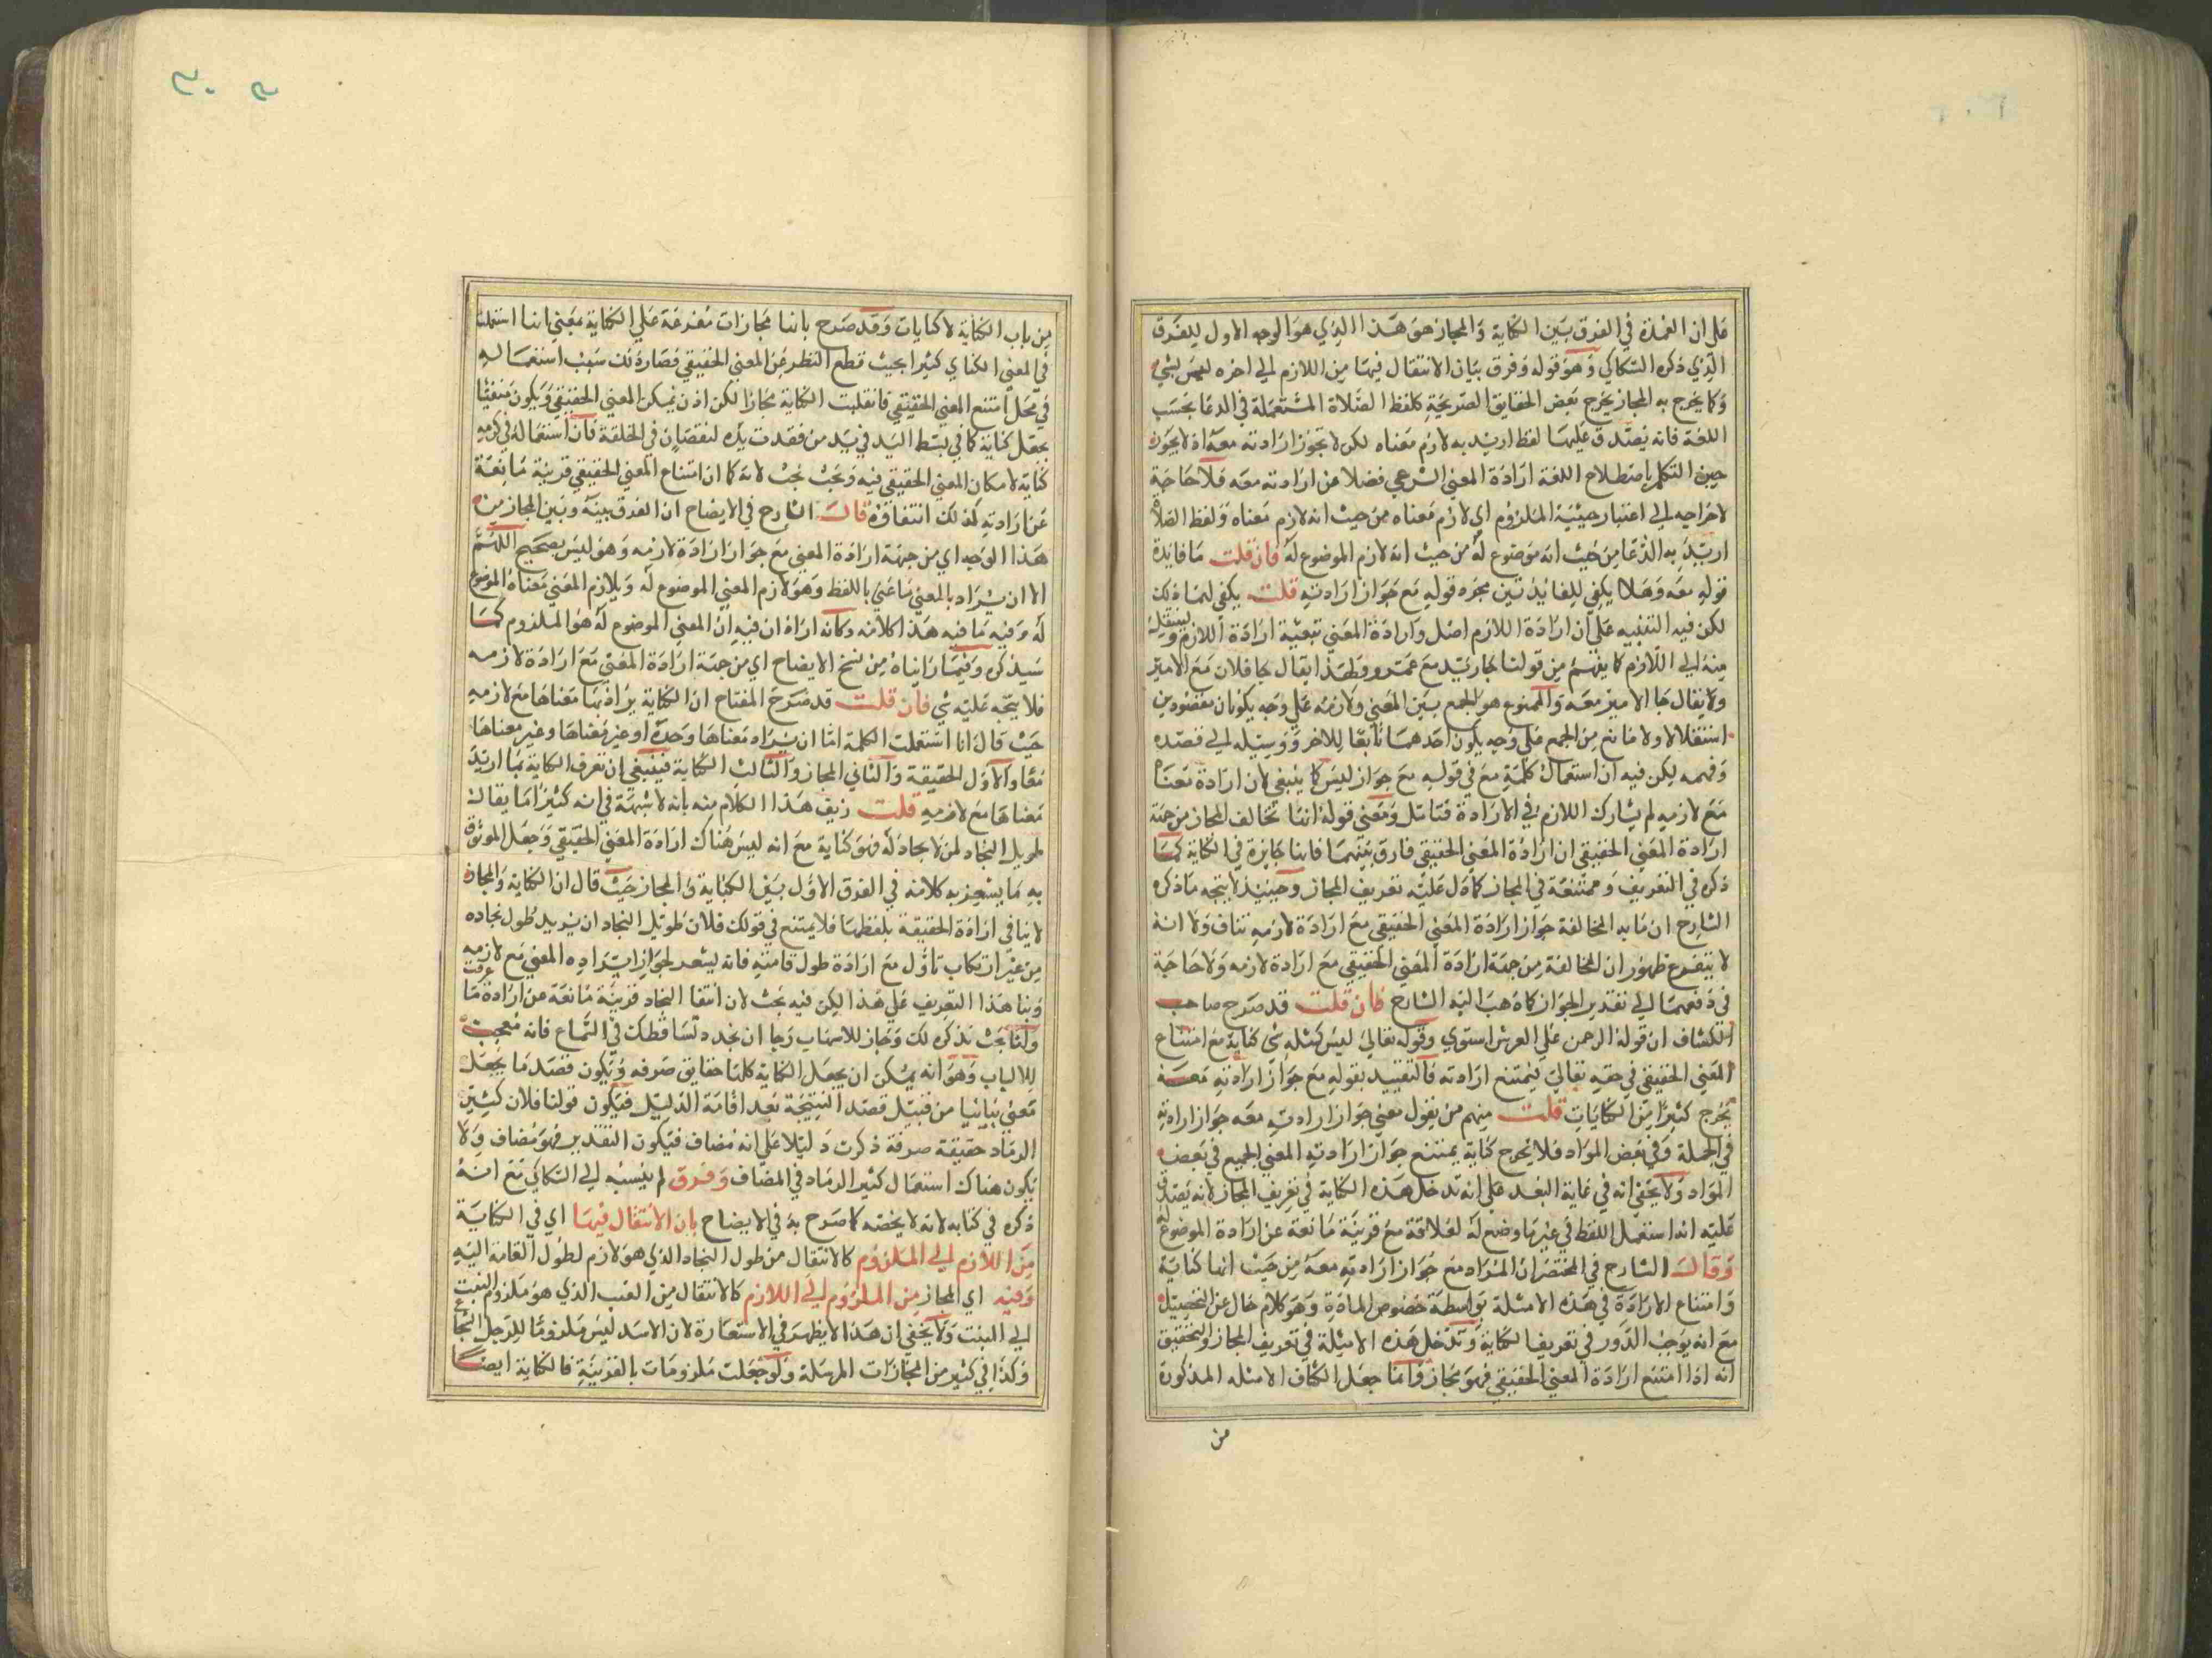 علي ان العمدة في الفرق بين الكناية والمجاز هو هذا الذي هو الوجه الاول للفرق
الذي ذكره السكاكي وهو قوله وفرق بيان الانتقال فيها من اللازم الي اخره ليس بشي
وكما يخرج به المجاز يخرج بعض الحقايق الصريحة كلفظ الصلاة المستعملة في الدعا بحسب
اللغة فانه يصدق عليها لفظ اريد به لازم معناه لكن لا تجوز ارادته معه اذ لا يجوز
حين التكلم باصطلاح اللغة ارادة المعني الشرعي فضلا عن ارادته معه فلا حاجة
لاخراجه الي اعتبار حيثية الملزوم اي لازم معناه من حيث انه لازم معناه ولفظ الصلاة
اريد به الدعا من حيث انه موضوع له من حيث انه لازم الموضوع له فان قلت ما فايدة
قوله معه وهلا يكفي للفايدتين مجرد قوله مع جواز ارادته قلت يكفي لهما ذلك
لكن فيه التنبيه علي ان ارادة اللازم اصل وارادة المعني تبعية ارادة اللازم ولينتقل
منه الي اللازم كما يفهم من قولنا جا زيد مع عمرو ولهذا يقال جا فلان مع الامير
ولا يقال جا الامير معه والممنوع هو الجمع بين المعني ولازمه علي وجه يكونان مقصودين
استقلالا ولا مانع من الجمع علي وجه يكون احدهما تابعا للاخر ووسيله الي قصده
وفهمه لكن فيه ان استعمال كلمة مع في قوله مع جواز ليس كما ينبغي لان ارادة معناه
مع لازمه لم يشارك اللازم في الارادة فتامل ومعني قوله انها تخالف المجاز من جهة
ارادة المعني الحقيقي ان ارادة المعني الحقيقي فارق بينهما فانها جايزة في الكناية كما
ذكره في التعريف وممتنعة في المجاز كما دل عليه تعريف المجاز وحينيذ لا يتجه ما ذكره
الشارح ان ما به المخالفة جواز ارادة المعني الحقيقي مع ارادة لازمه تناف ولا انه
لا يتفرع ظهور ان المخالفة من جهة ارادة المعني الحقيقي مع ارادة لازمه ولا حاجة
في دفعهما الي تقدير الجواز كما ذهب اليه الشارح فان قلت قد صرح صاحب
الكشاف ان قوله الرحمن علي العرش استوي وقوله تعالي ليس كمثله شي كناية مع امتناع
المعني الحقيقي في حقه تعالي فيمتنع ارادته فالتقييد بقوله مع جواز ارادته معه
يخرج كثيرا من الكنايات قلت منهم من يقول معني جواز ارادته معه جواز ارادته
في الجملة وفي بعض المواد فلا يخرج كناية يمتنع جواز ارادته المعني الجميع في بعض
المواد ولا يخفي انه في غاية البعد علي انه تدخل هذه الكناية في تعريف المجاز لانه يصدق
عليه انه استعمل اللفظ في غير ما وضع له لعلاقة مع قرينة مانعة عن ارادة الموضوع له
وقال الشارح في المختصر ان المراد مع جواز ارادته معه من حيث انها كناية
وامتناع الارادة في هذه الامثلة بواسطة خصوص المادة وهو كلام خال عن التحصيل
مع انه يوجب الدور في تعريف الكناية وتدخل هذه الامثلة في تعريف المجاز والتحقيق
انه اذا امتنع ارادة المعني الحقيقي فهو مجاز وانما جعل الكشاف الامثله المذكورة
من
من باب الكناية لا كنايات وقد صرح بانها مجازات متفرعة علي الكناية بمعني انها استعملت
في المعني الكناي كثيرا بحيث قطع النظر عن المعني الحقيقي فصار ذلك سبب استعماله
في محل امتنع المعني الحقيقي فانقلبت الكناية مجازا لكن اذن يمكن المعني الحقيقي ويكون منتفيا
يجعل كناية كما في بسط اليد في يد من فقدت يده لنقصان في الخلقة فان استعماله في كرمه
كناية لامكان المعني الحقيقي فيه وبحث بحث لانه كما ان امتناع المعني الحقيقي قرينة مانعة
عن ارادته لذلك انتفاؤه قال الشارح في الايضاح ان الفرق بينه وبين المجاز من
هذا الوجه اي من جهة ارادة المعني مع جواز ارادة لازمه وهو ليس بصحيح اللهم
الا ان يراد بالمعني ما عني باللفظ وهو لازم المعني الموضوع له وبلازم المعني معناه الموضوع
له وفيه ما فيه هذا كلامه وكانه اراد ان فيه ان المعني الموضوع له هو الملزوم كما
سيذكره وفيما رايناه من نسخ الايضاح اي من جهة ارادة المعني مع ارادة لازمه
فلا يتجه عليه شي فان قلت قد صرح المفتاح ان الكناية يراد بها معناها مع لازمه
حيث قال اذا استعملت الكلمة اما ان يراد معناها وحده او غير معناها او معناها وغير معناها
معا والاول الحقيقة والثاني المجاز والثالث الكناية فينبغي ان تعرف الكناية بما اريد
معناها مع لازمه قلت زيف هذا الكلام منه بانه لا شبهة في انه كثيرا ما يقال
طويل النجاد لمن لا نجاد له فهو كناية مع انه ليس هناك ارادة المعني الحقيقي وجعل الموثوق
به ما يشعر به كلامه في الفرق الاول بين الكناية والمجاز حيث قال ان الكناية والمجاز
لا ينافي ارادة الحقيقة بلفظها فلا يمتنع في قولك فلان طويل النجاد ان يريد طول نجاده
من غير ارتكاب تاول مع ارادة طول قامته فانه يشعر لجواز ايراده المعني مع لازمه
وبنا هذا التعريف علي هذا لكن فيه بحث لان انتفا النجاد قرينة مانعة عن ارادة ما عرفت
ولنا بحث نذكره لك وحجاز للاسهاب رجا ان نجد دلسا فطنك في السماع فانه معجب
للالباب وهو انه يمكن ان يجعل الكناية كلها حقايق صرفه ويكون قصد ما يجعل
معني بيانيا من قبيل قصد النتيجة بعد اقامة الدليل فيكون قولنا فلان كثير
الرماد حقيقة صرفة ذكرت دليلا علي انه مضاف فيكون التقدير فهو مضاف ولا
يكون هناك استعمال كثير الرماد في المضاف وفرق لم ينسبه الي السكاكي مع انه
ذكره في كتابه لانه لا يخصه كما صرح به في الايضاح بان الانتقال فيها اي في الكناية
من اللازم الي الملزوم كالانتقال من طول النجاد الذي هو لازم لطول القامة اليه
وفيه اي المجاز من الملزوم الي اللازم كالانتقال من الغيث الذي هو ملزوم النبت
الي النبت ولا يخفي ان هذا لا يظهر في الاستعارة لان الاسد ليس ملزوما للرجل الشجاع
وكذا في كثير من المجازات المرسلة ولو جعلت ملزومات بالقرينة فالكناية ايضا